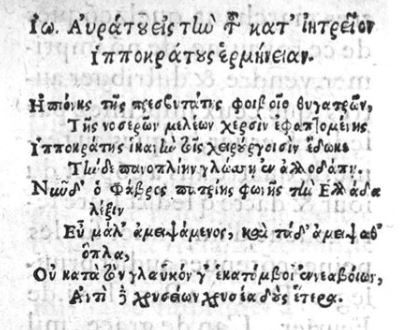 Ἰω. Αὐράτου εἰς τὴν τῶν κατ' ἰητρεῖον
Ἱπποκράτους ἑρμήνειαν.
Ἠπιόνης τῆς πρεσβυτάτης φοιβοῖο θυγατρῶν,
Τῆς νοσερῶν μελέων χερσὶν ἐφαπτομένης
Ἱπποκράτης ἱκανὴν τοῖς χειρουργοῖσιν ἔδωκε
Τὴν δὲ πανοπλίην γλώττῃ ἐν ἀλλοδάπῃ.
Νῦν δ' ὁ Φάβρος πατρίης φωνῆς τὴν Ἑλλάδα
λέξιν
Εὖ μάλ' ἀμειψάμενος, καὶ τάδ' ἀμείψαθ'
ὅπλα,
Οὐ κατὰ τὸν γλαῦκόν γ' ἑκατόμβοι' ἐννεαβοίων,
Ἀντὶ δὲ χρυσείων χρυσία δοὺς ἕτερα.